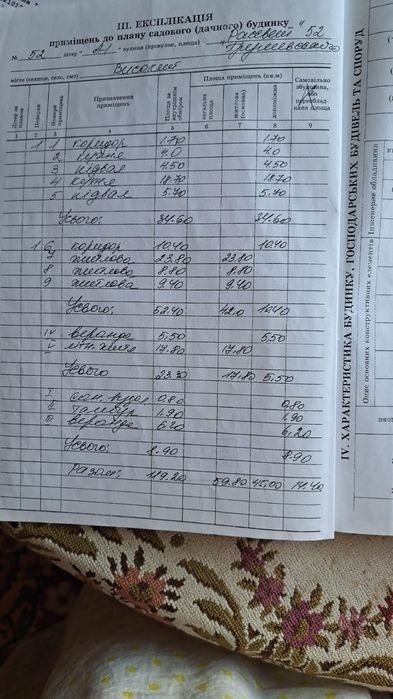 III. ЕКСПЛІКАЦІЯ
приміщень до плану садового (дачного) будинку
№ 52 літер "А1" вулиця (провулок, площа) "Рассвет" 52
Грушевського
місто (селище, село, смт) Високий
Літер за планом
Поверхи
Номери приміщень
Призначення приміщень
Площа за внутрішнім обміром
Площа приміщень (кв.м)
загальна площа
житлова (основна)
допоміжна
Самовільно збудована, або переобладнана площа
1 2 3 4 5 6 7 8 9
1 1 коридор 1.70 1.70
2 кухня 4.0 4.0
3 підвал 4.50 4.50
4 кухня 18.70 18.70
5 підвал 5.70 5.70
Усього: 34.60 34.60
1 6 коридор 10.40 10.40
7 житлова 23.80 23.80
8 житлова 8.80 8.80
9 житлова 9.40 9.40
Усього: 52.40 42.0 10.40
IV веранда 5,50 5,50
V літн. житл 17.80 17.80
Усього 23.30 17.80 5.50
I сан. вузол 0,80 0,80
II тамбур 1,90 1,90
III веранда 6.20 6,20
Усього: 8.90 8.90
Разом: 119.20 59.80 45,00 14.40
IV. ХАРАКТЕРИСТИКА БУДИНКУ, ГОСПОДАРСЬКИХ БУДІВЕЛЬ ТА СПОРУД
Опис основних конструктивних елементів
Інженерне обладнання